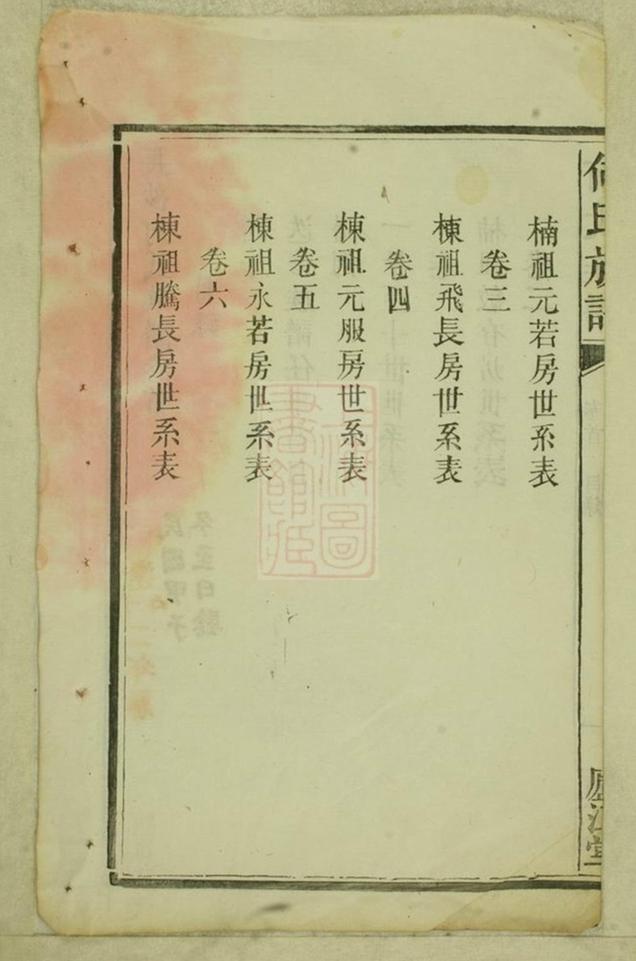 何氏族譜
廬江堂
楠祖元若房世系表
卷三
棟祖飛長房世系表
卷四
棟祖元服房世系表
卷五
棟祖永若房世系表
卷六
棟祖騰長房世系表